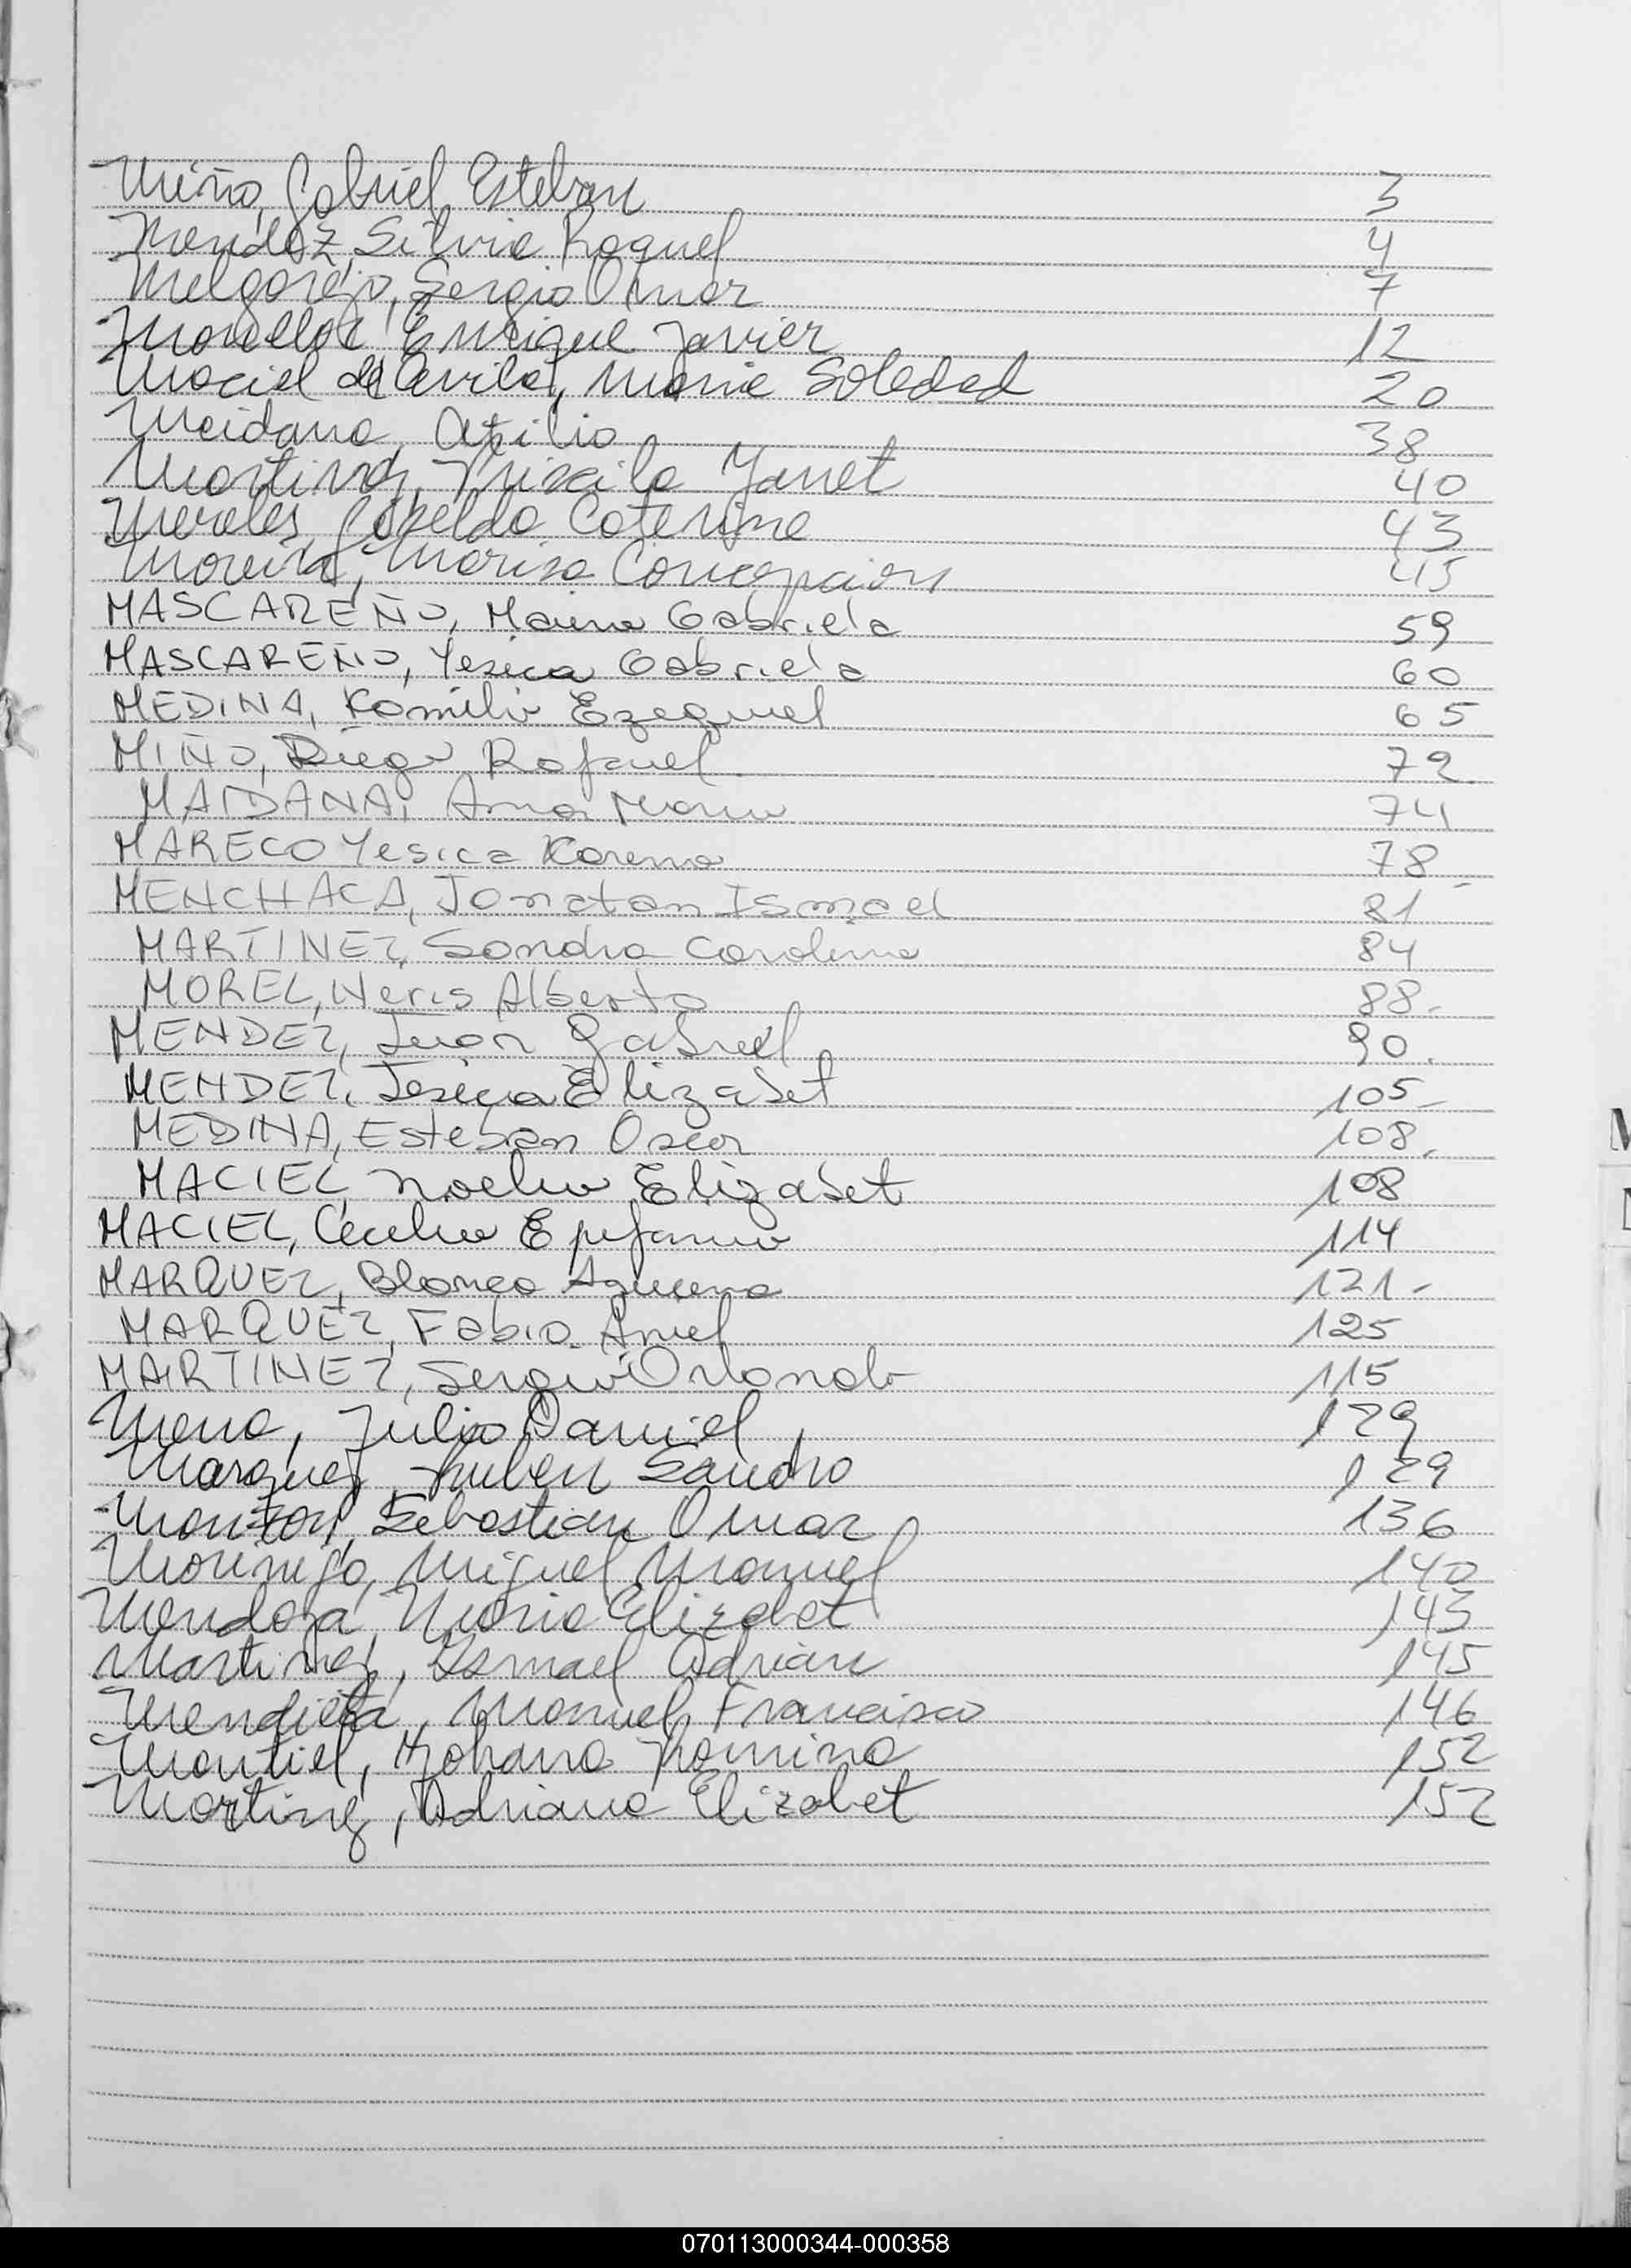 Miño, Gabriel Esteban 3
Mendez, Silvia Raquel 4
Melgarejo, Sergio Omar 7
Enrique Javier 12
Maciel de Avila, Maria Soledad 20
Meidana, Atilio 38
Martinez, Priscila Yanet 40
Mereles, Caterine 43
Moreira, Marisa Concepcion 45
MASCAREÑO, Maria Gabriela 59
MASCAREÑO, Yesica Gabriela 60
MEDINA, Kamilo Ezequiel 65
MIÑO, Diego Rafael 72
MAIDANA, Ana Maria 74
MARECO Yesica Karena 78
MENCHACA, Jonatan Ismael 81
MARTINEZ, Sandra Carolina 84
MOREL, Neris Alberto 88.
MENDEZ, Juan Gabriel 90.
MENDEZ, Jesica Elizabet 105-
MEDINA, Esteban Oscar 108.
MACIEL, Noelia Elizabet 108
MACIEL, Cecilia Epifania 114
MARQUEZ, Blanca Azucena 121-
MARQUEZ, Fabio Ariel 125
MARTINEZ, Sergio Orlando 115
Mena, Julio Daniel 129
Marquez, Ruben Sandro 129
Monzon, Sebastian Omar 136
Morinigo, Miguel Manuel 140
Mendoza, Maria Elizabet 143
Martinez, Ismael Adrian 145
Mendieta, Manuel Francisco 146
Montiel, Romina 152
Martinez, Adriana Elizabet 152
070113000344-000358